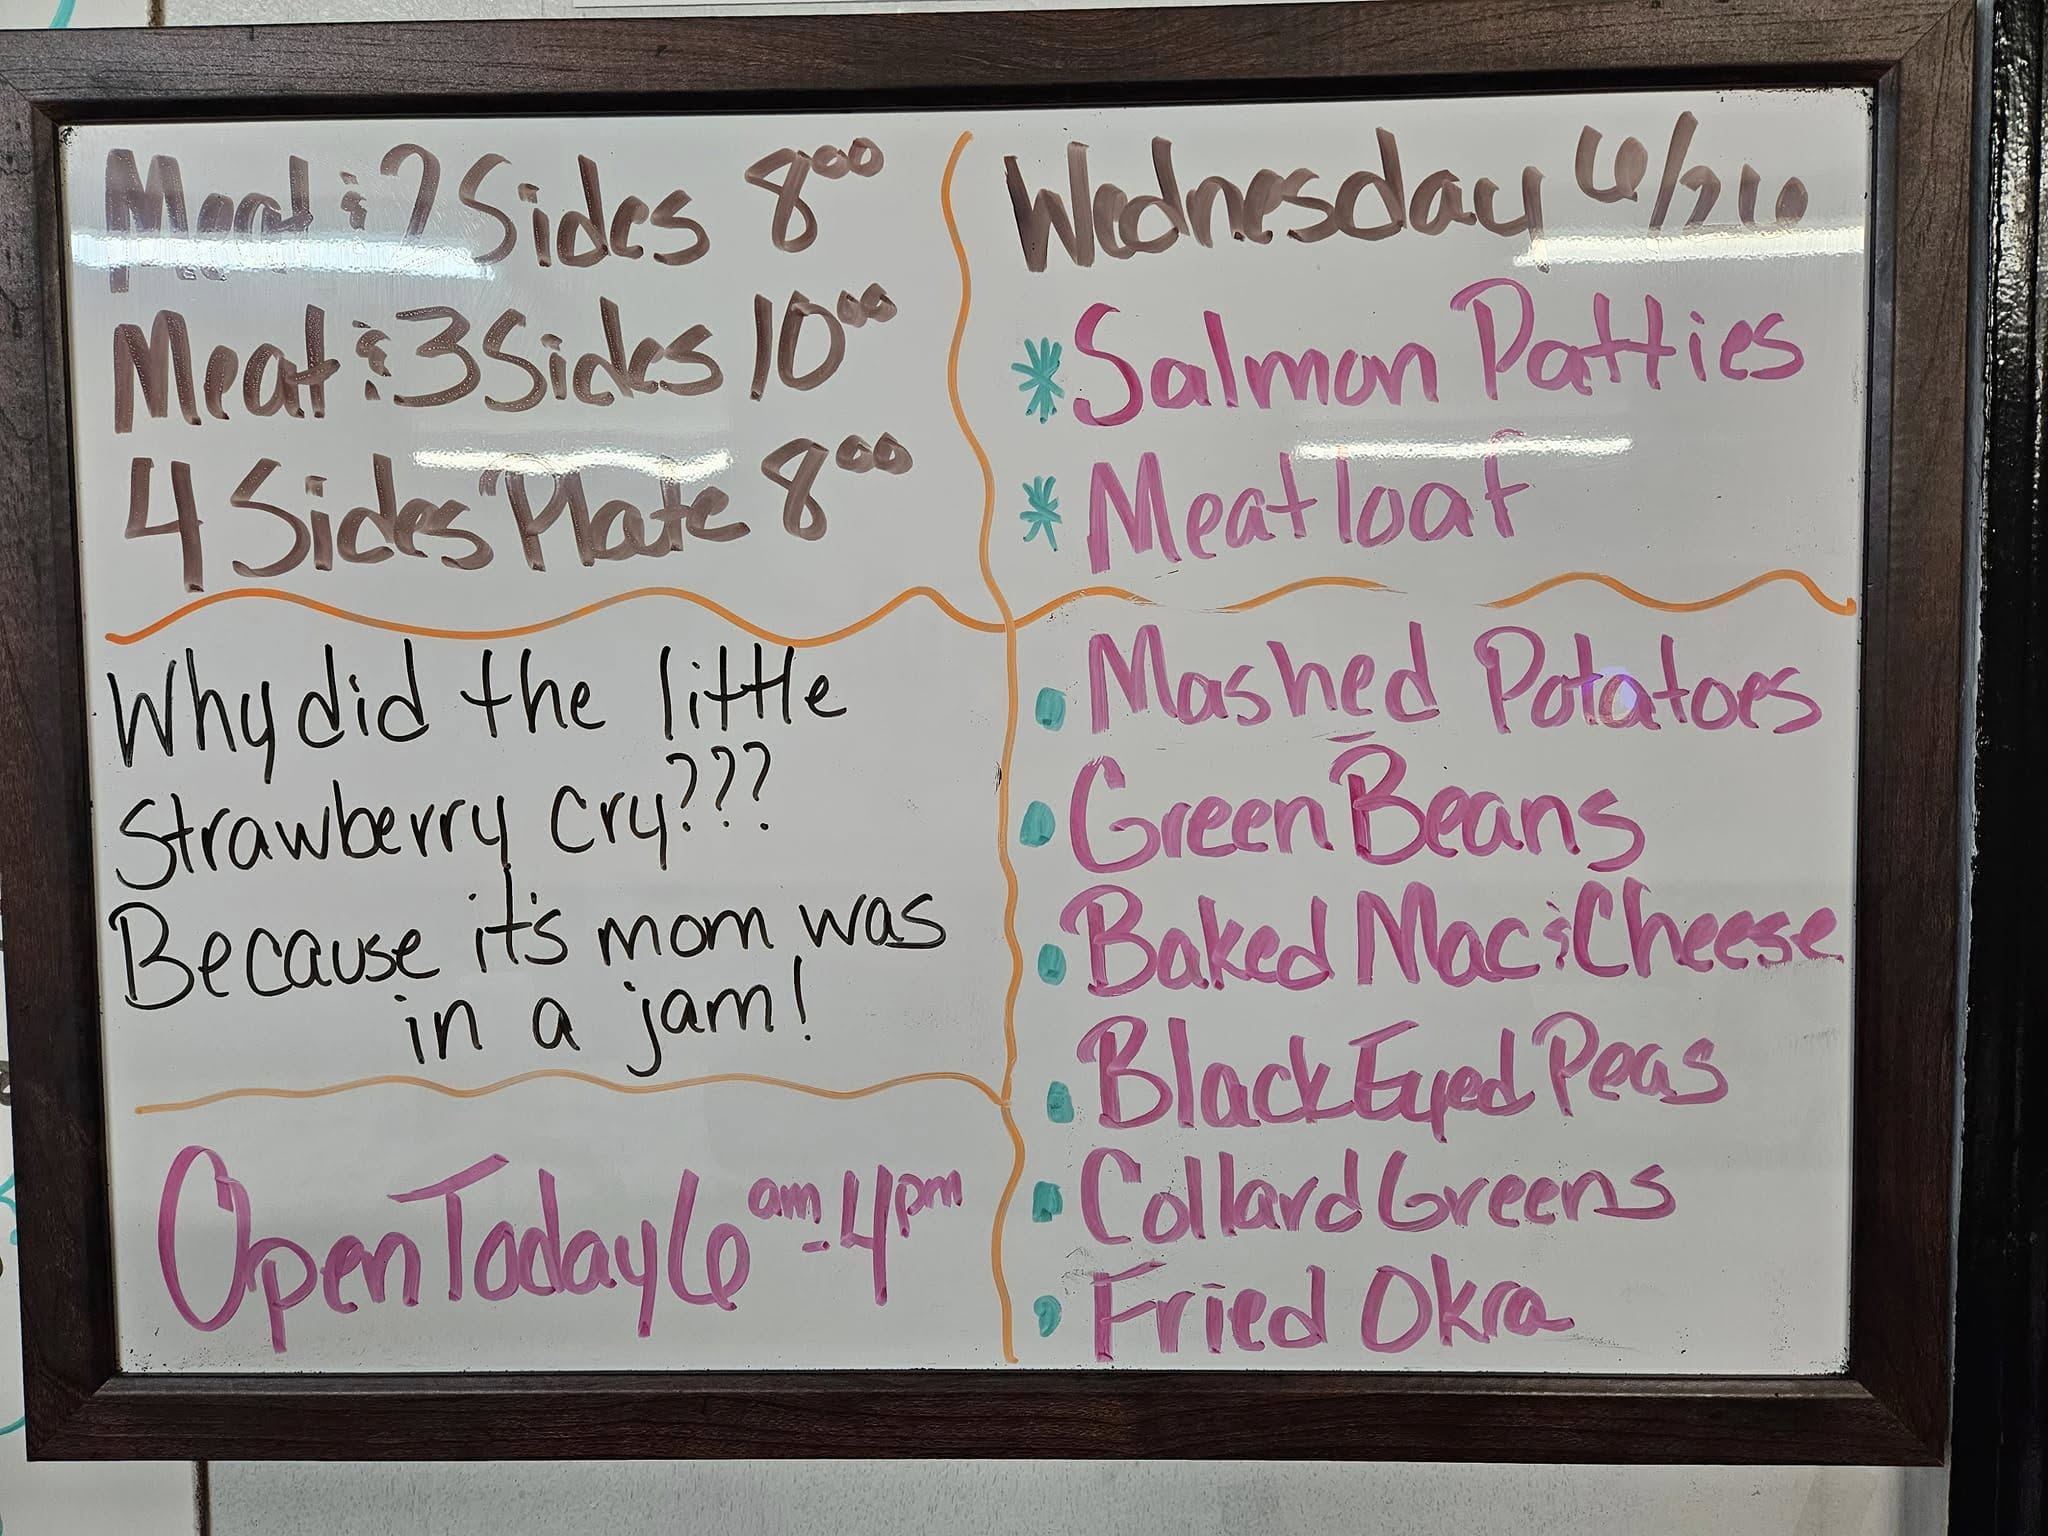 Meat & 2 Sides 8⁰⁰
Meat & 3 Sides 10⁰⁰
4 Sides "Plate 8⁰⁰
Why did the little
strawberry cry???
Because it's mom was
in a jam!
Open Today 6am - 4pm
Wednesday 6/26
* Salmon Patties
* Meatloaf
• Mashed Potatoes
• Green Beans
• Baked Mac & Cheese
• Black Eyed Peas
• Collard Greens
• Fried Okra